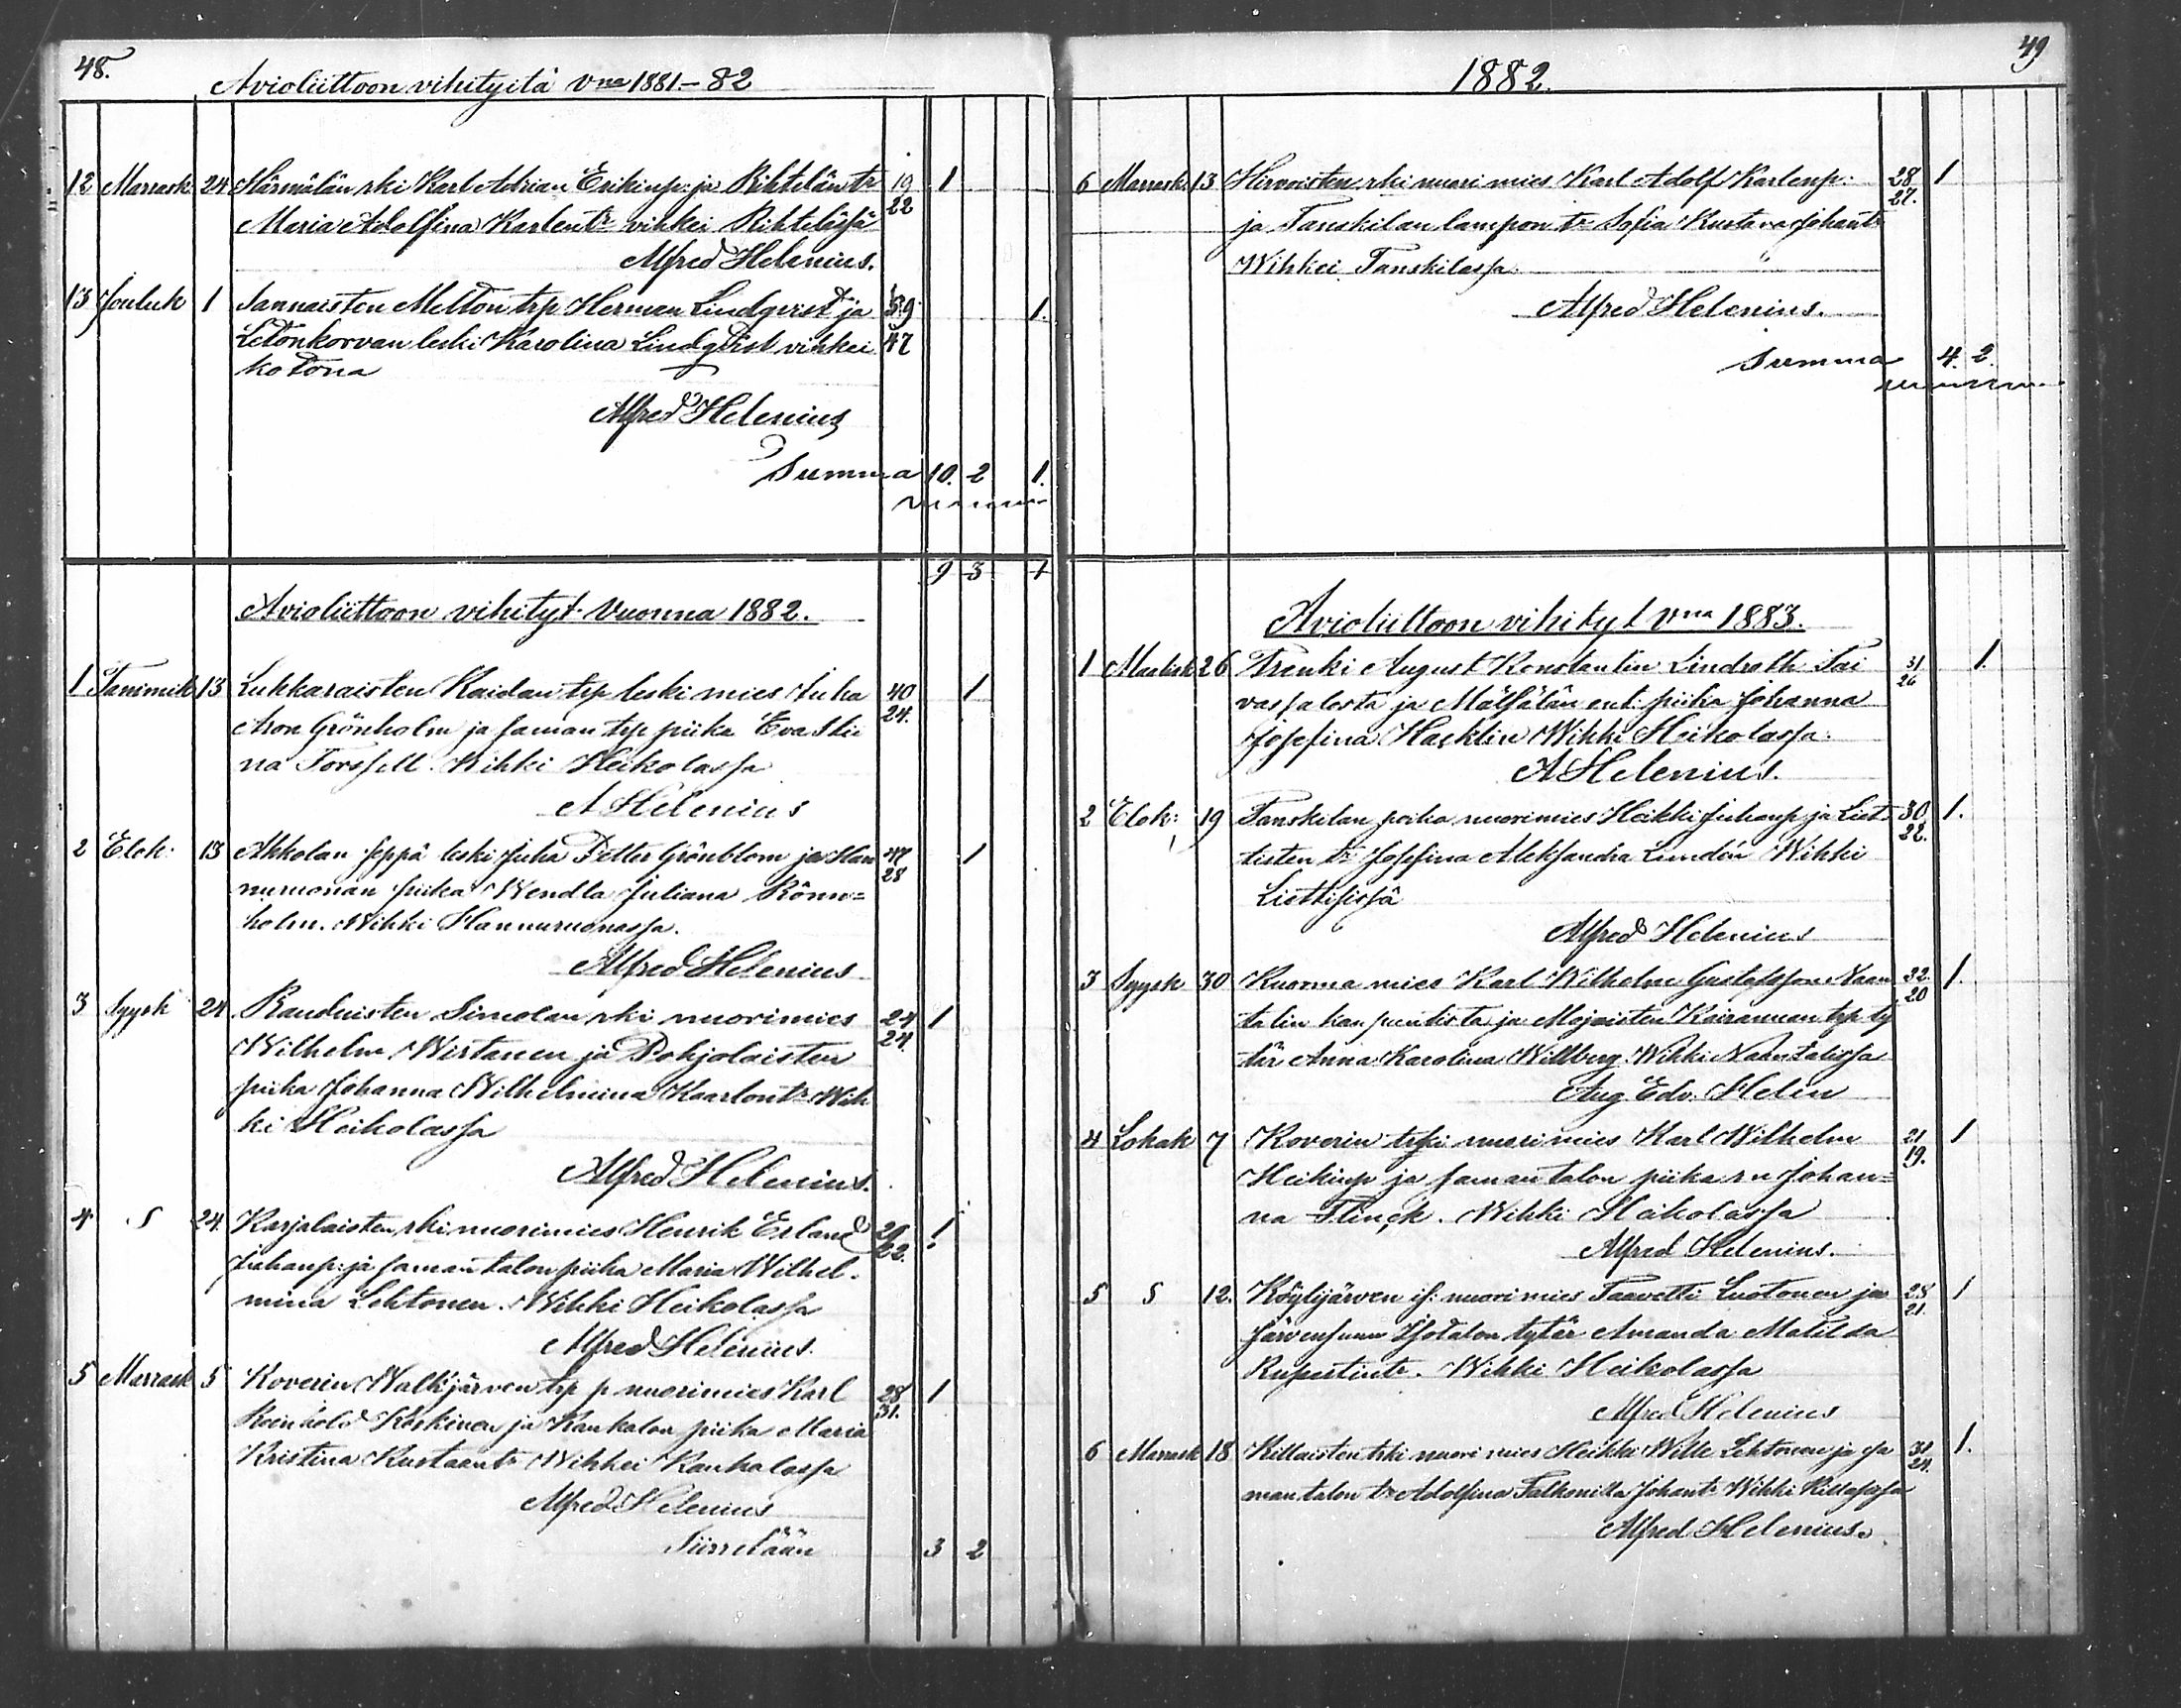 48.
Avioliittoon vihityitä Vna 1881-82
12 Marrask 24 Härmälän rki Karl Adrian Erikinp: ja Rihtelän tr 19 1
Maria Adolfina Karlentr vihkei Rihtelässä 22
Alfred Helenius.
13 Jouluk 1 Sannaisten Mellon trp Herman Lindqvist ja 59 1.
Letonkorvan leski Karolina Lindqvist vihkei 47
kotona
Alfred Helenius
Summa 10. 2 1.
9 3 1
Avioliittoon vihityt Vuonna 1882.
1 Tammik 13 Lukkaraisten Kaidan trp leski mies Juha 40 1
Aron Grönholm ja saman trp piika Eva Sti 24.
na Forssell. Vihki Heikolassa
A Helenius
2 Elok: 13 Ahkolan seppä leski Juha Petter Grönblom ja Han 47 1
nuruonan piika Wendla Juliana Rönn= 28
holm. Wihki Hannuruonassa.
Alfred Helenius
3 Syysk 24 Rauduisten Simolan rki nuorimies 24 1
Wilhelm Wirtanen ja Pohjolaisten 24.
piika Johanna Wilhelmina Kaarlontr Wih
ki Heikolassa
Alfred Helenius.
4 S 24. Karjalaisten rki nuorimies Henrik Erland 29 1
Juhanp: ja saman talon piika Maria Wilhel- 22.
mina Lehtonen. Wihki Heikolassa
Alfred Helenius.
5 Marrask 5 Koverin Walkjärven trp p nuorimies Karl 28 1
Reinhold Koskinen ja Kankalon piika Maria 31.
Kristina Kustaantr Wihkei Kankalassa
Alfred Helenius
Siirretään 3 2
49
1882.
6 Marrask 13 Hirvoisten rki nuori mies Karl Adolf Karlenp: 28 1
ja Tanskilan lampon tr Sofia Kustava Johantr 27.
Wihkei Tanskilassa
Alfred Helenius.
Summa 4. 2.
Avioliittoon vihityt Vna 1883.
1 Maalisk 26 Trenki August Konstantin Lindroth Tai 31 1.
vassalosta ja Mälsälän ent: piika Johanna 26
Josefina Hacklin Wihki Heikolassa.
A Helenius.
2 Elok: 19 Tanskilan poika nuorimies Heikki Juhanp ja Liet 30 1.
tisten tr Josefina Aleksandra Lundén Wihki 22.
Liettisissä
Alfred Helenius
3 Syysk 30 Kuorma mies Karl Wilhelm Gustafsson Naan 32. 1.
talin kaupunkista ja Mojaisten Kairannan trp ty 20
tär Anna Karolina Willberg. Wihki Naantalissa
Aug. Edv. Helin
4 Lokak 7 Koverin trki nuorimies Karl Wilhelm 21 1
Heikinp ja saman talon piika Johan= 19.
na Flinck. Wihki Heikolassa
Alfred Helenius.
5 S 12. Köylijärven is: nuorimies Taavetti Luotonen ja 28 1
Järvensuun Isotalon tytär Amanda Matilda 21.
Rupertintr. Wihki Heikolassa
Alfred Helenius
6 Marrask 18 Killaisten trki nuori mies Heikki Wille Lehtonen ja sa 31 1.
man talon tr Adolfina Falkonilla Johantr Wihki Killassa 24.
Alfred Helenius.